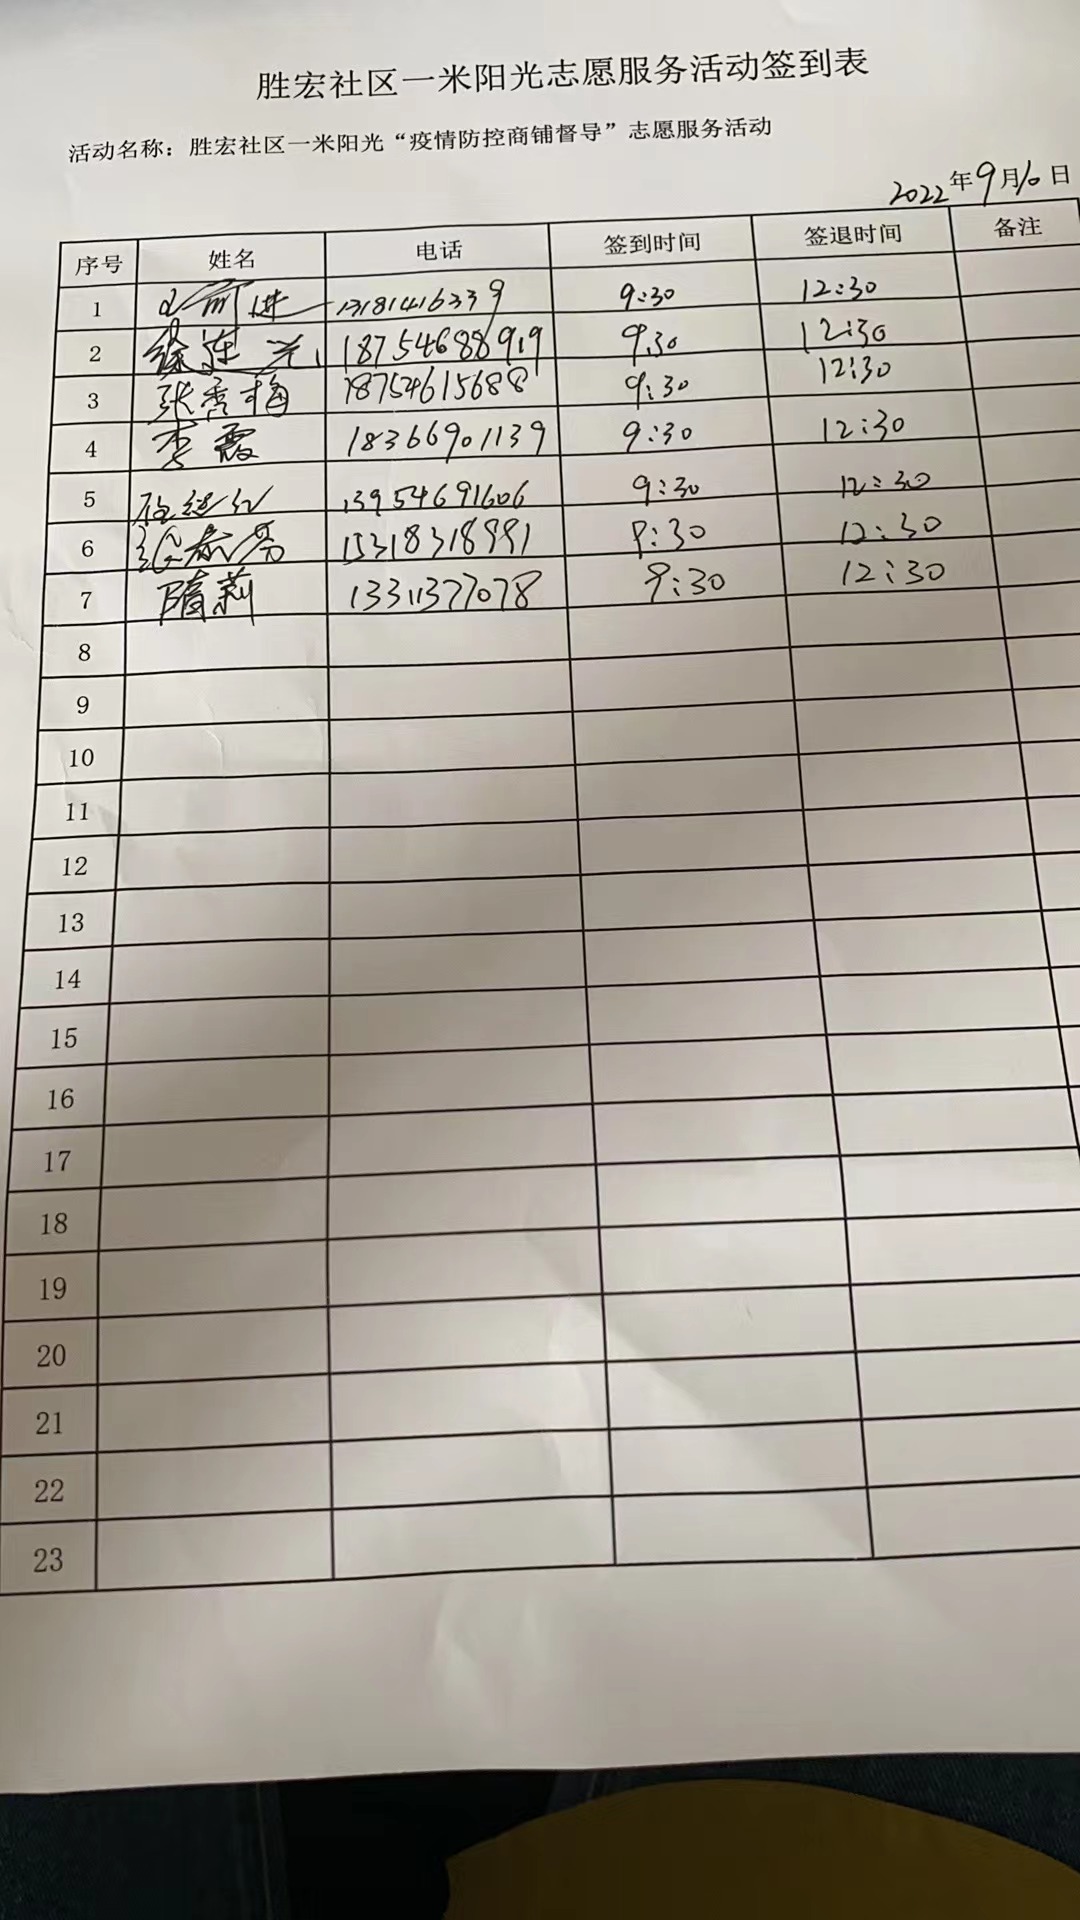 胜宏社区一米阳光志愿服务活动签到表
活动名称：胜宏社区一米阳光“疫情防控商铺督导”志愿服务活动
2022年9月10日
序号 姓名 电话 签到时间 签退时间 备注
1 前进 13181416339 9:30 12:30
2 徐连光 18754688919 9:30 12:30
3 张秀梅 18754615688 9:30 12:30
4 李霞 18366901139 9:30 12:30
5 13954691606 9:30 12:30
6 15318318991 9:30 12:30
7 隋莉 13311377078 9:30 12:30
8
9
10
11
12
13
14
15
16
17
18
19
20
21
22
23